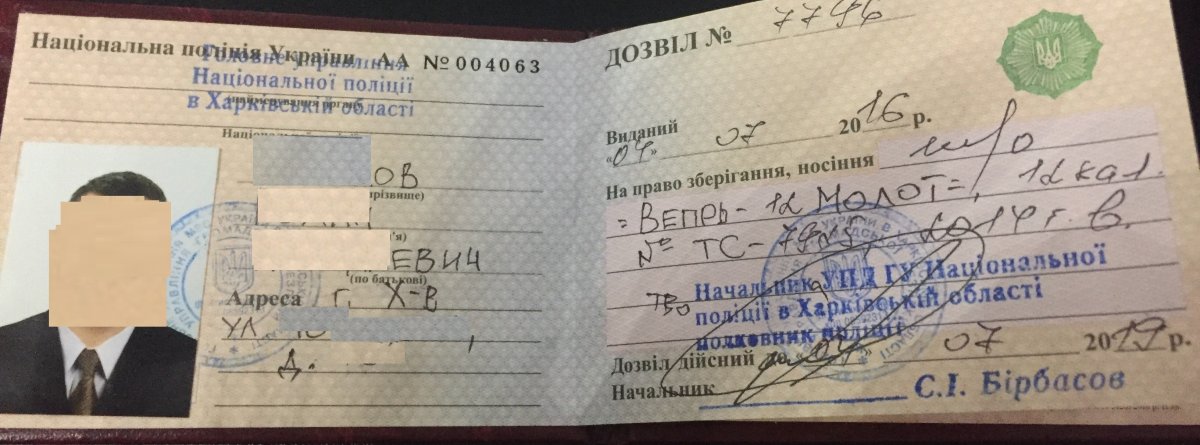 Національна поліція України АА № 004063
Головне управління
Національної поліції
в Харківській області
(найменування органу)
ОВ
різвище)
ЕВИЧ
(по батькові)
Адреса г. Х-в
УЛ
Д.
ДОЗВІЛ № 7746
Виданий
«04» 07 2016 р.
На право зберігання, носіння
=ВЕПРЬ-12 МОЛОТ=, 12 кал.
№ ТС- 2014 г. в.
Начальник УПД ГУ Національної
поліції в Харківській області
полковник поліції
Дозвіл дійсний до «04» 07 2019 р.
Начальник
С.І. Бірбасов